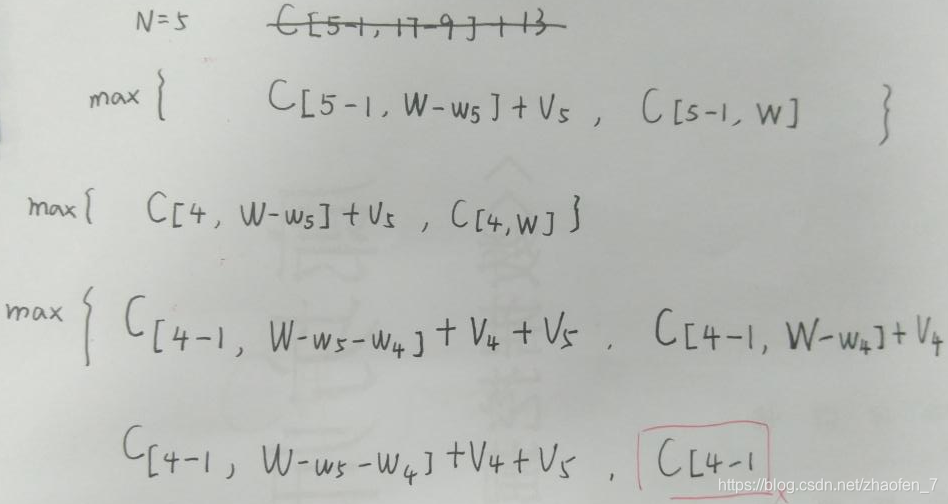 N=5 C[5-1, 17-9]+13
max{ C[5-1, W-w5]+V5 , C[5-1, W] }
max{ C[4, W-w5]+V5 , C[4,W] }
max{ C[4-1, W-w5-w4]+V4+V5 , C[4-1, W-w4]+V4
C[4-1, W-w5-w4]+V4+V5 , C[4-1
https://blog.csdn.net/zhaofen_7